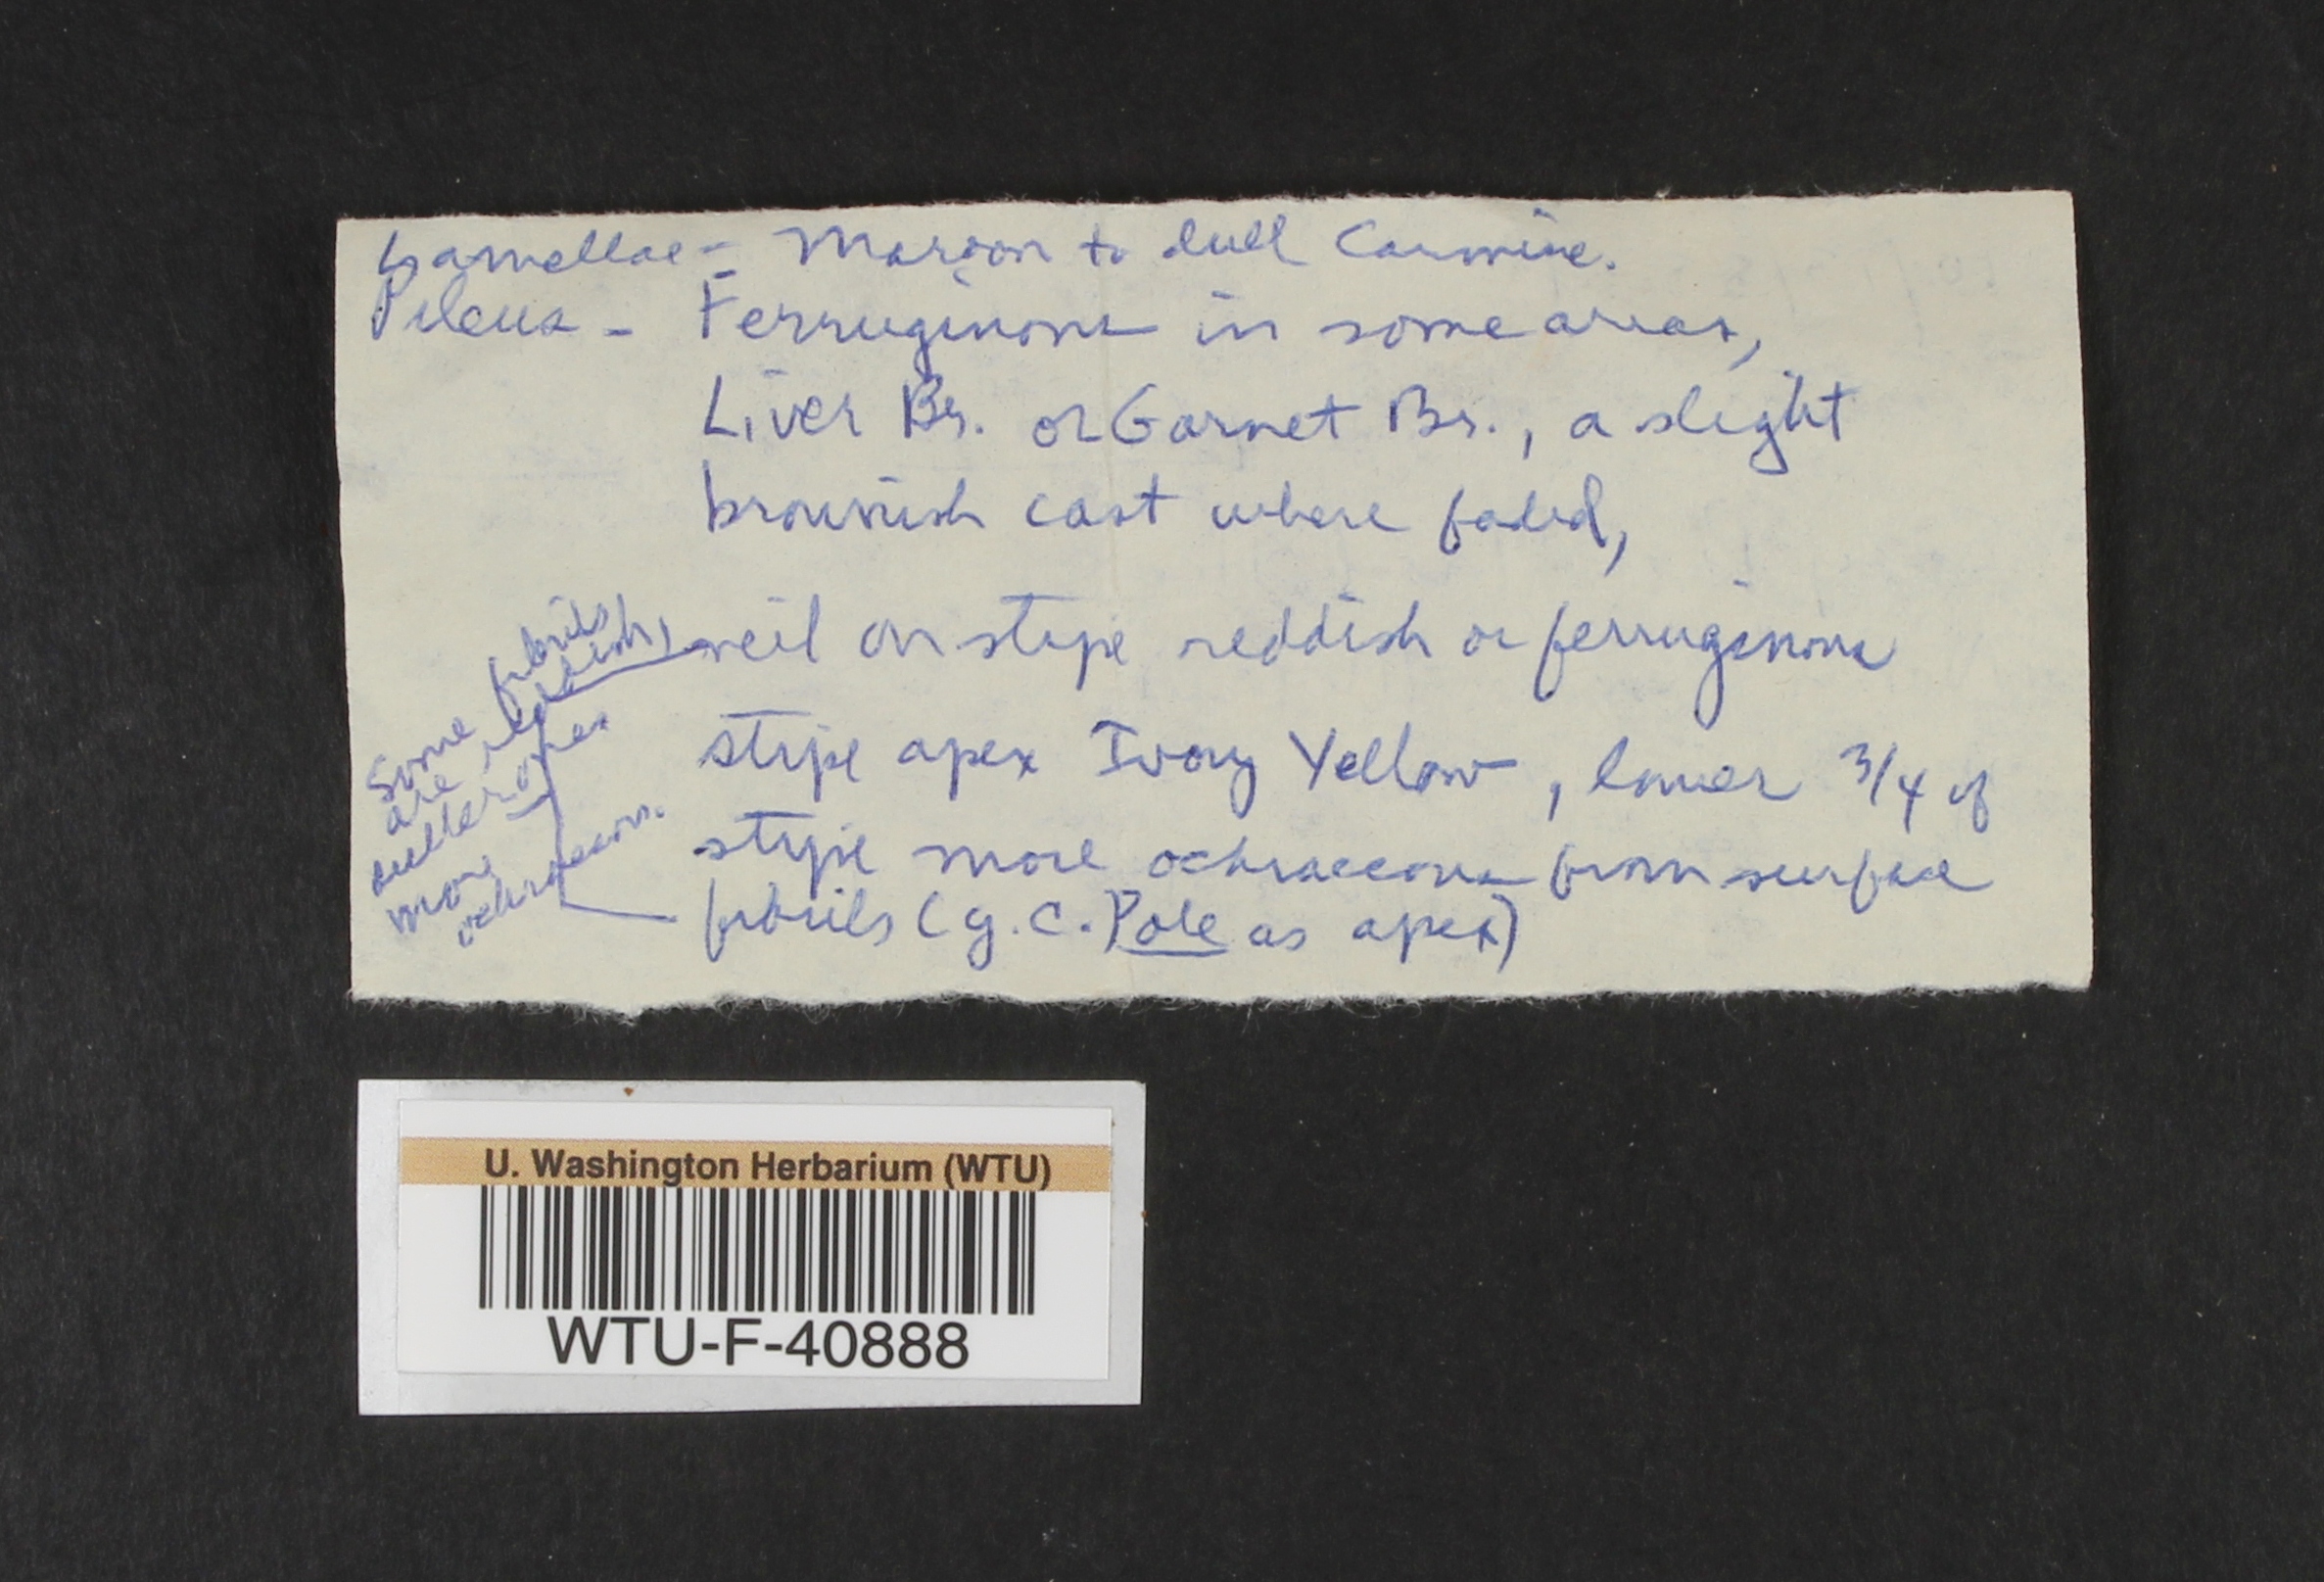 Lamellae - Maroon to dull Carmine.
Pileus - Ferruginous in some areas,
Liver Br. or Garnet Br., a slight
brownish cast where faded,
veil on stipe reddish or ferruginous
stipe apex Ivory Yellow, lower 3/4 of
stipe more ochraceous from surface
fibrils (g.c. Pale as apex)
Some fibrils
are reddish,
outer ones
more
ochraceous.
U. Washington Herbarium (WTU)
WTU-F-40888